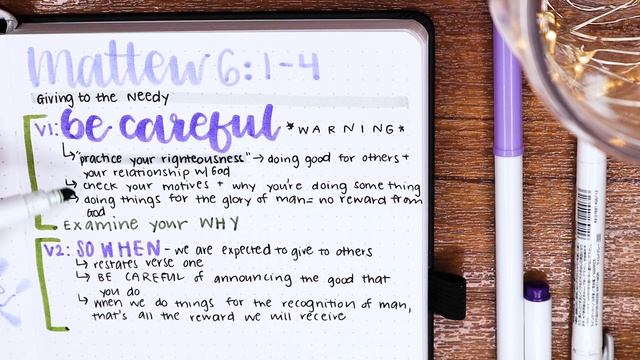 Mattew 6:1-4
Giving to the Needy
V1: be careful *WARNING*
↳ "practice your righteousness" → doing good for others +
your relationship w/ God
↳ check your motives + why you're doing something
↳ doing things for the glory of man = no reward from
God
Examine your WHY
V2: SO WHEN - we are expected to give to others
↳ restates verse one
↳ BE CAREFUL of announcing the good that
you do
↳ when we do things for the recognition of man,
that's all the reward we will receive